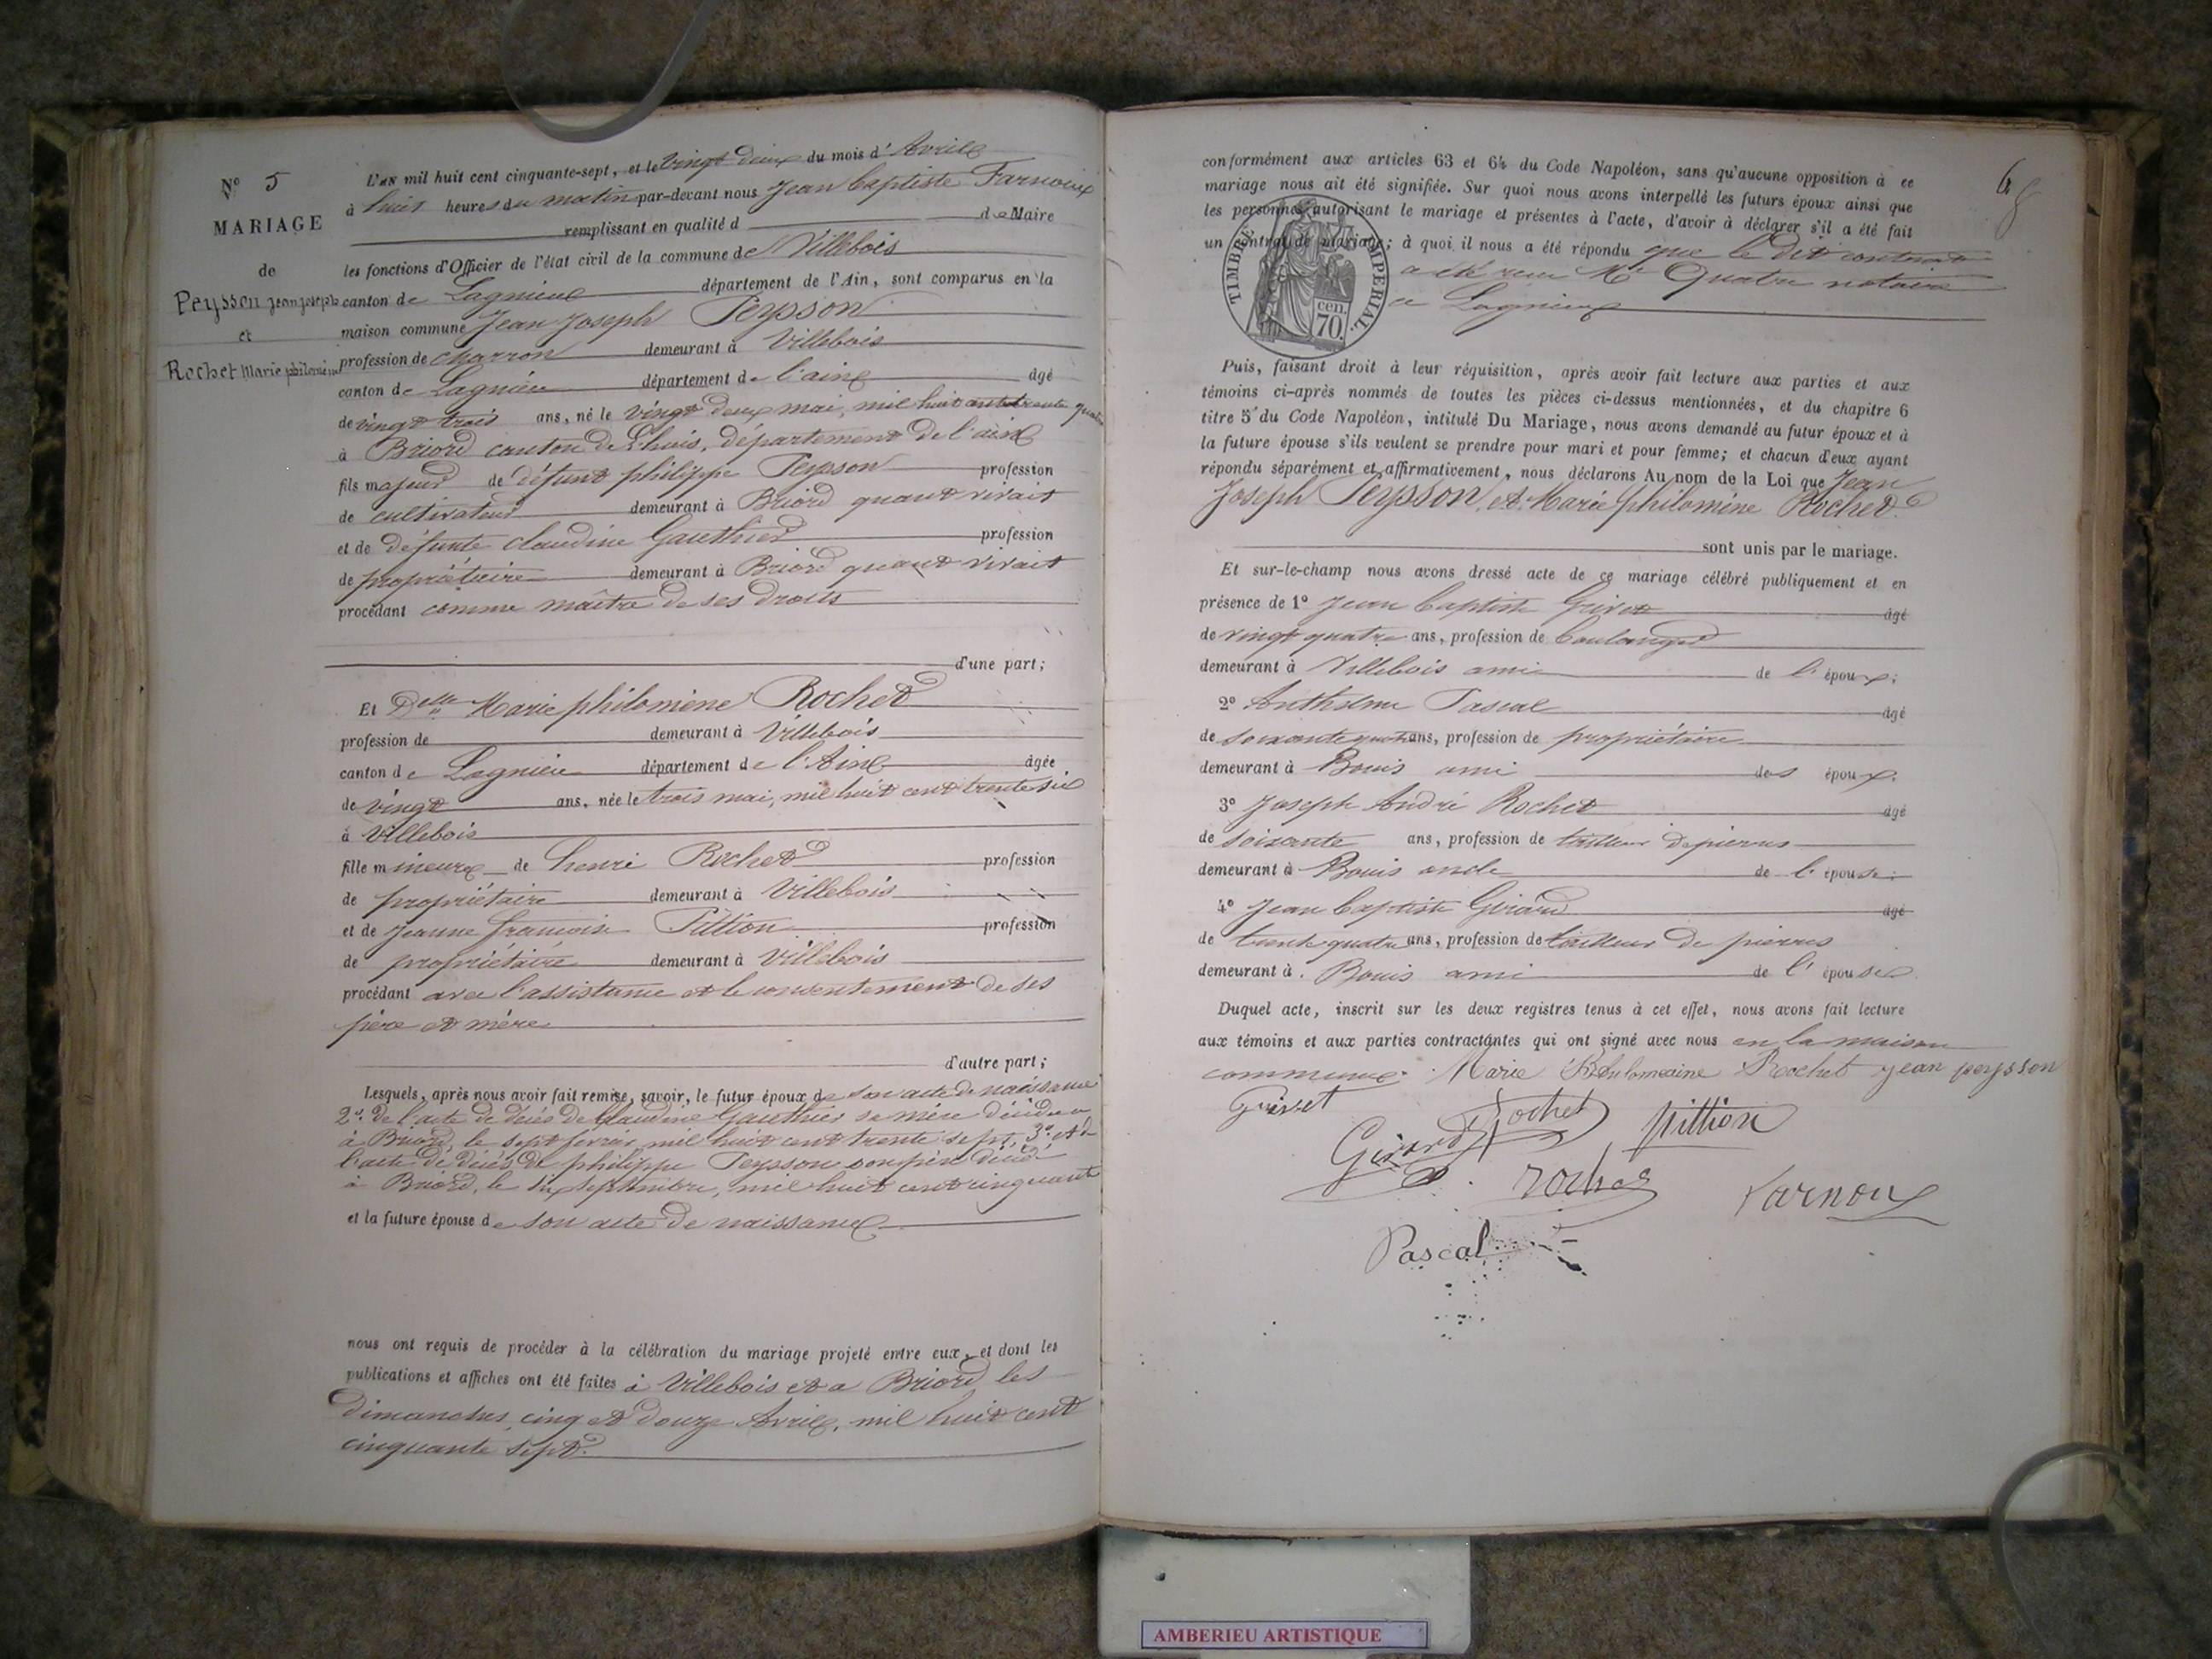 N° 5
MARIAGE
de
Peysson Jean Joseph
et
Rochet Marie philomène
L'AN mil huit cent cinquante-sept, et le vingt deux du mois d'Avril
à huit heures du matin par-devant nous Jean Baptiste Farnoux
remplissant en qualité d de Maire
les fonctions d'Officier de l'état civil de la commune de Villebois
canton de Lagnieu département de l'Ain, sont comparus en la
maison commune Jean Joseph Peysson
profession de charron demeurant à Villebois
canton de Lagnieu département de l'ain âgé
de vingt trois ans, né le vingt deux mai, mil huit cent trente quatre
à Briord canton de Lhuis, département de l'ain
fils majeur de défunt philippe Peysson profession
de cultivateur demeurant à Briord quant vivait
et de défunte claudine Gauthier profession
de propriétaire demeurant à Briord quant vivait
procédant comme maître de ses droits
d'une part;
Et Delle Marie philomène Rochet
profession de demeurant à Villebois
canton de Lagnieu département de l'Ain âgée
de vingt ans, née le trois mai, mil huit cent trente six
à Villebois
fille mineure de henri Rochet profession
de propriétaire demeurant à Villebois
et de Jeanne françoise Pittion profession
de propriétaire demeurant à Villebois
procédant avec l'assistance et le consentement de ses
père et mère
d'autre part;
Lesquels, après nous avoir fait remise, savoir, le futur époux de son acte de naissance
2° de l'acte de décès de Claudine Gauthier sa mère décédée
à Briord, le sept février mil huit cent trente sept, 3° et de
l'acte de décès de philippe Peysson son père décédé
à Briord, le six septembre, mil huit cent cinquante
et la future épouse de son acte de naissance
nous ont requis de procéder à la célébration du mariage projeté entre eux, et dont les
publications et affiches ont été faites à Villebois et a Briord les
dimanches cinq et douze Avril, mil huit cent
cinquante sept.
conformément aux articles 63 et 64 du Code Napoléon, sans qu'aucune opposition à ce
mariage nous ait été signifiée. Sur quoi nous avons interpellé les futurs époux ainsi que
les personnes autorisant le mariage et présentes à l'acte, d'avoir à déclarer s'il a été fait
un contrat de mariage; à quoi il nous a été répondu que le dit contrat
a été reçu Me Quatre notaire
a Lagnieu
TIMBRE IMPERIAL.
70 cen.
Puis, faisant droit à leur réquisition, après avoir fait lecture aux parties et aux
témoins ci-après nommés de toutes les pièces ci-dessus mentionnées, et du chapitre 6
titre 5 du Code Napoléon, intitulé Du Mariage, nous avons demandé au futur époux et à
la future épouse s'ils veulent se prendre pour mari et pour femme; et chacun d'eux ayant
répondu séparément et affirmativement, nous déclarons Au nom de la Loi que Jean
Joseph Peysson, et Marie philomène Rochet
sont unis par le mariage.
Et sur-le-champ nous avons dressé acte de ce mariage célébré publiquement et en
présence de 1° Jean Baptiste Grivet âgé
de vingt quatre ans, profession de boulanger
demeurant à Villebois ami de l'époux;
2° Anthelme Pascal âgé
de soixante quatre ans, profession de propriétaire
demeurant à Bouis ami des époux;
3° Joseph André Rochet âgé
de soixante ans, profession de tailleur de pierres
demeurant à Bouis oncle de l'épouse;
4° Jean Baptiste Girard âgé
de trente quatre ans, profession de tailleur de pierres
demeurant à Bouis ami de l'épouse
Duquel acte, inscrit sur les deux registres tenus à cet effet, nous avons fait lecture
aux témoins et aux parties contractantes qui ont signé avec nous en la maison
commune. Marie Rochet jean peysson
Grivet
Girard Rochet pittion
rochet Farnoux
Pascal
AMBERIEU ARTISTIQUE